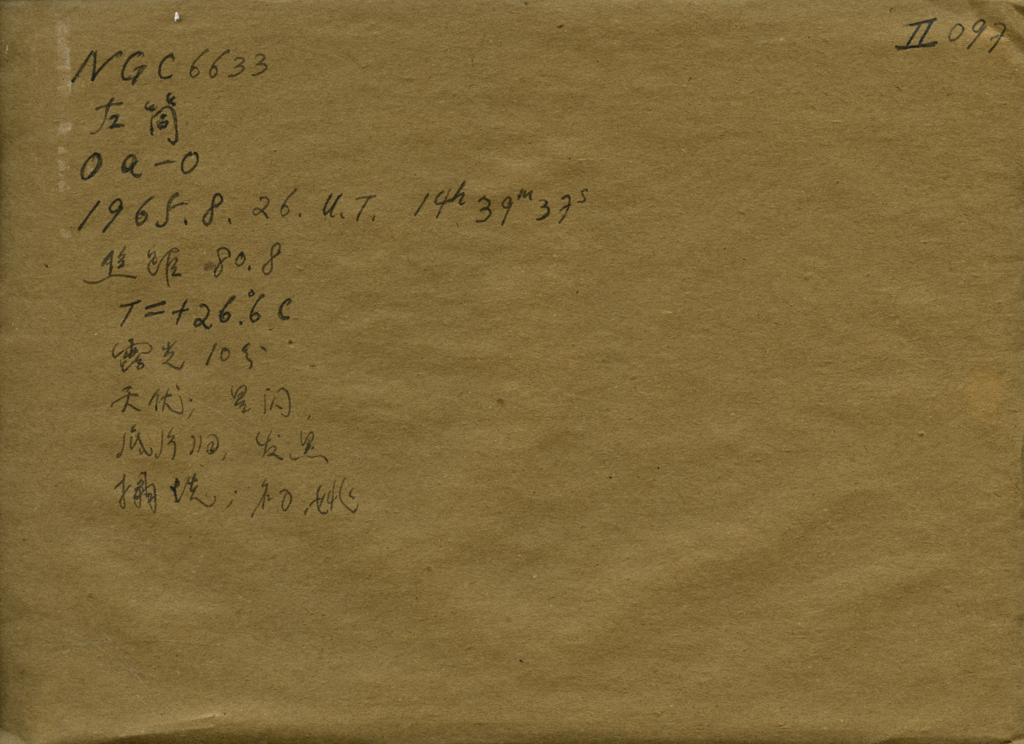 II 097
NGC6633
左筒
Oa-O
1965.8.26. U.T. 14h 39m 37s
80.8
T=+26.°6 C
露光 10分
天优; 星闪,
底片旧, 发黑
初, 姚